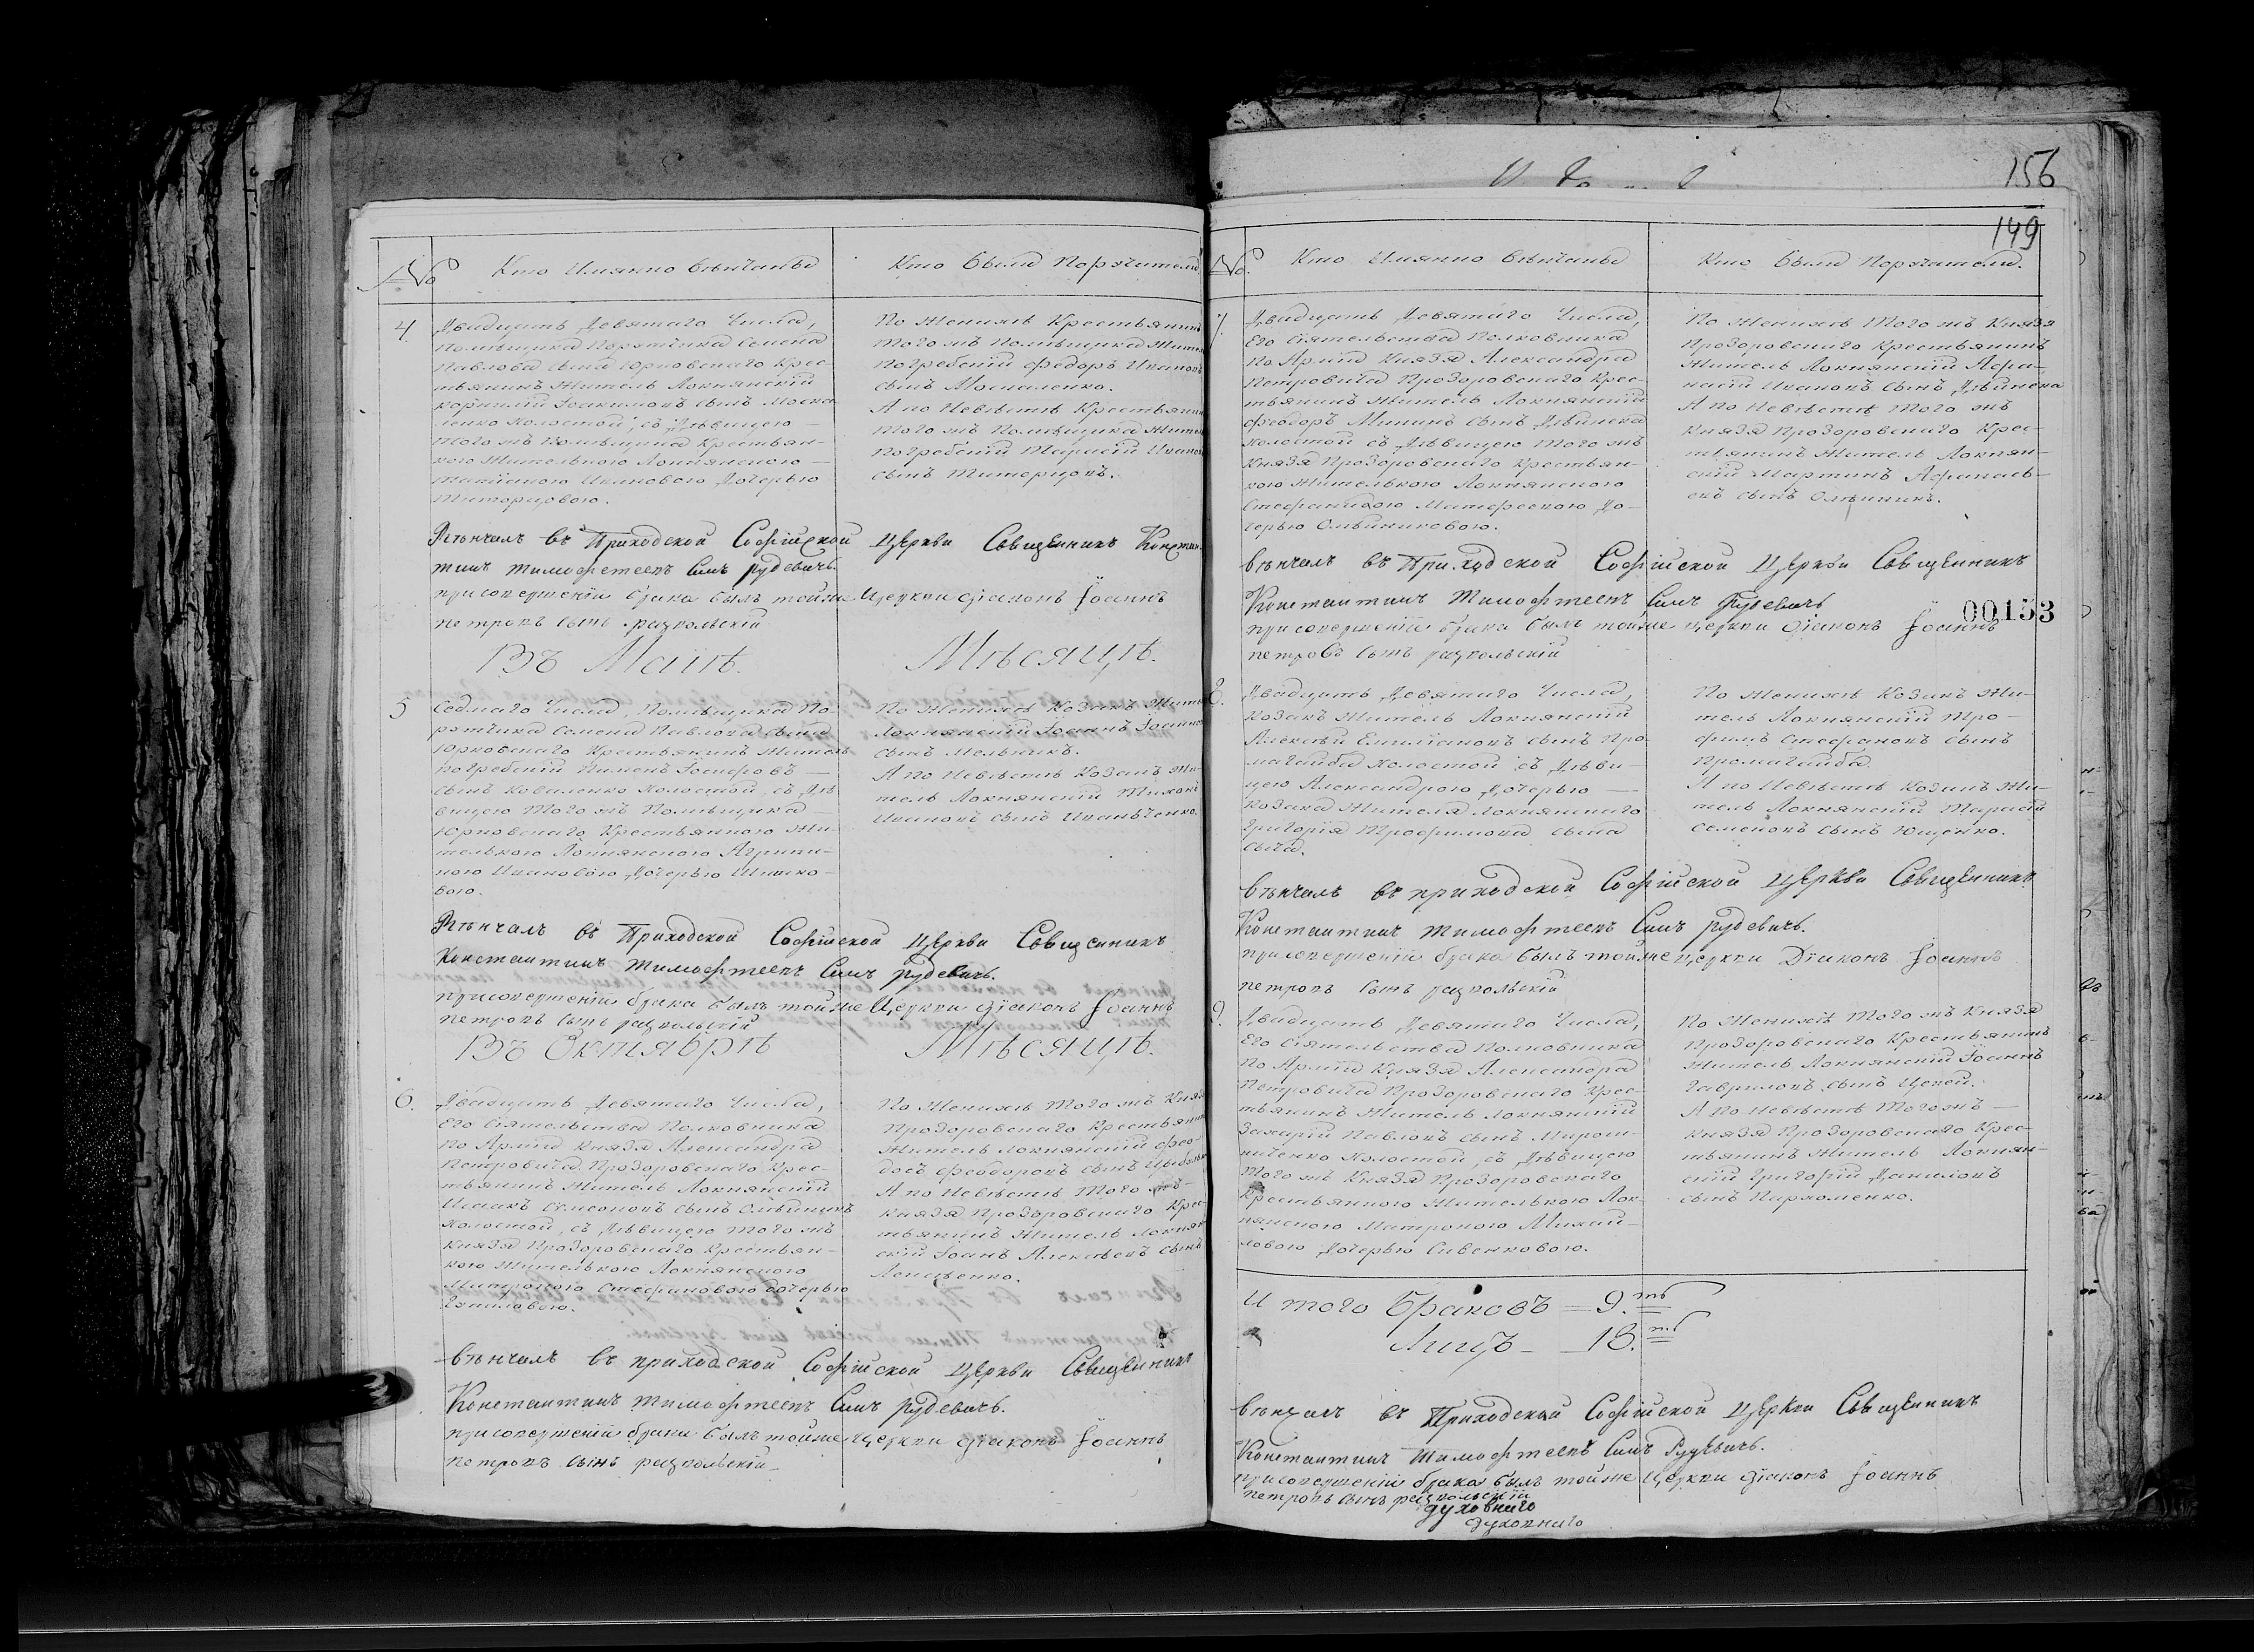 № Кто Имянно Венчаны Кто были Поручители
4 Двадцать Девятаго Числа,
Помѣщика Порутчика Семена
Павлова сына Юрковскаго Крес-
тьянинъ Житель Локнянскій
Корнилій Іоакимовъ сынъ Моска-
ленко Холостой, съ Дѣвицею —
того жъ Помѣщика Крестьян-
кою Жителькою Локнянскою —
Ивановою Дочерью
Титорцовою.
По Женихѣ Крестьянинъ
того жъ Помѣщика
Погребскій Федоръ Ивановъ
сынъ Москаленко.
А по Невѣстѣ Крестьянинъ
того жъ Помѣщика
Погребскій Тарасій
сынъ Титорцовъ.
Вѣнчалъ въ Приходской Софійской Церкви Священникъ Констан-
тинъ Тимофѣевъ Сынъ Рудевичъ.
при совершеніи брака былъ тойже Церкви діаконъ Іоаннъ
петровъ сынъ распольскій
Въ Маіѣ. Мѣсяцѣ.
5 Седмаго Числа, Помѣщика По-
рутчика Семена Павлова сына
Юрковскаго Крестьянинъ Житель
Погребскій Пименъ Іосифовъ —
сынъ Коваленко Холостой, съ Дѣ-
вицею того жъ Помѣщика —
Юрковскаго Крестьянкою Жи-
телькою Локнянскою Агрипи-
ною Ивановою Дочерью
вою.
По Женихѣ Козакъ
Локнянскій Іоаннъ
сынъ Мельникъ.
А по Невѣстѣ Козакъ Жи-
тель Локнянскій Тихонъ
Ивановъ сынъ Иваньченко.
Вѣнчалъ въ Приходской Софійской Церкви Священникъ
Константинъ Тимофѣевъ Сынъ Рудевичъ.
при совершеніи брака былъ тойже Церкви діаконъ Іоаннъ
петровъ сынъ распольскій
Въ Октяврѣ Мѣсяцѣ.
6. Двадцать Девятаго Числа,
Его Сіятельства Полковника
По Арміи Князя Александра
Петровича Прозоровскаго Крес-
тьянинъ Житель Локнянскій
Исаакъ Симеоновъ сынъ Олѣйникъ
Холостой, съ Дѣвицею того жъ
Князя Прозоровскаго Крестьян-
кою Жителькою Локнянскою
Матроною Стефановою дочерью
По Женихѣ того жъ Князя
Прозоровскаго Крестьянинъ
Житель Локнянскій Фео-
досъ Феодоровъ сынъ
А по Невѣстѣ того жъ
Князя Прозоровскаго Крес-
тьянинъ Житель Локнян-
скій Іоанъ Алексѣевъ сынъ
Вѣнчалъ въ приходской Софійской Церкви Священникъ
Константинъ Тимофѣевъ Сынъ Рудевичъ.
при совершеніи брака былъ тойже Церкви діаконъ Іоаннъ
петровъ сынъ распольскій
156
149
№. Кто Имянно Венчаны Кто были Поручители.
7. Двадцать Девятаго Числа,
Его Сіятельства Полковника
По Арміи Князя Александра
Петровича Прозоровскаго Крес-
тьянинъ Житель Локнянскій
Феодоръ Мининъ сынъ
Холостой съ Дѣвицею того жъ
Князя Прозоровскаго Крестьян-
кою Жителькою Локнянскою
Стефанидою Матфеевою До-
черью Олѣйниковою.
По Женихѣ того жъ Князя
Прозоровскаго Крестьянинъ
Житель Локнянскій Афа-
насій Ивановъ сынъ
А по Невѣстѣ того жъ
Князя Прозоровскаго Крес-
тьянинъ Житель Локнян-
скій Мартинъ Афанась-
евъ сынъ Олѣйникъ.
Вѣнчалъ въ Приходской Софійской Церкви Священникъ
Константинъ Тимофѣевъ Сынъ Рудевичъ
00153
при совершеніи брака былъ тойже церкви діаконъ Іоаннъ
петровъ сынъ распольскій
8. Двадцать Девятаго Числа,
Козакъ Житель Локнянскій
Алексѣй Емиліановъ сынъ Про-
магайба Холостой, съ Дѣви-
цею Александрою Дочерью —
Козака Жителя Локнянскаго
Григорія Трофимова сына
Сыча.
По Женихѣ Козакъ Жи-
тель Локнянскій Тро-
фимъ Стефановъ сынъ
Промагайба.
А по Невѣстѣ Козакъ Жи-
тель Локнянскій Тарасій
Семеновъ сынъ Ющенко.
Вѣнчалъ въ приходской Софійской Церкви Священникъ
Константинъ Тимофѣевъ Сынъ Рудевичъ.
при совершеніи брака былъ тойже церкви Діаконъ Іоаннъ
петровъ сынъ распольскій
9. Двадцать Девятаго Числа,
Его Сіятельства Полковника
По Арміи Князя Александра
Петровича Прозоровскаго Крес-
тьянинъ Житель Локнянскій
Захарій Павловъ сынъ Мирош-
ниченко Холостой, съ Дѣвицею
того жъ Князя Прозоровскаго
Крестьянкою Жителькою Лок-
нянскою Матроною Михай-
ловою Дочерью Сивенковою.
По Женихѣ того жъ Князя
Прозоровскаго Крестьянинъ
Житель Локнянскій Іоаннъ
Гавриловъ сынъ Цепей.
А по Невѣстѣ того жъ —
Князя Прозоровскаго Крес-
тьянинъ Житель Локнян-
скій Григорій Даниловъ
сынъ Пархоменко.
И того Браковъ = 9.ть
Лицъ — 18.ть
Вѣнчалъ въ Приходской Софійской Церкви Священникъ
Константинъ Тимофѣевъ Сынъ Рудевичъ.
при совершеніи брака былъ тойже Церкви діаконъ Іоаннъ
петровъ сынъ распольскій
духовнаго
духовнаго